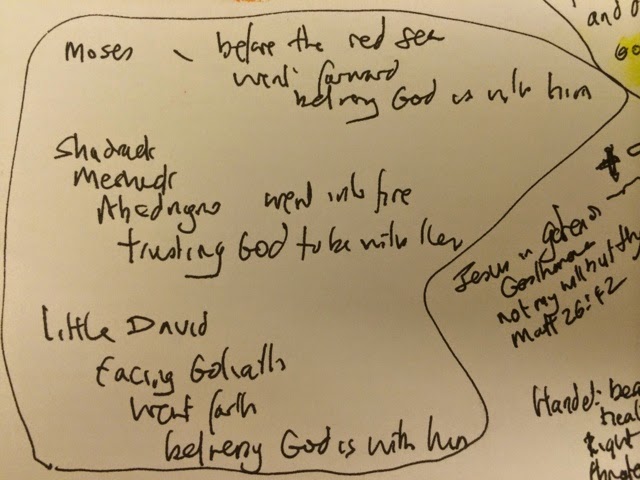 Moses - before the red sea
went forward
believing God is with him
Shadrach
Meshach
Abednego went into fire
trusting God to be with them
Little David
facing Goliath
went forth
believing God is with him
and
Jesus in garden of
Gesthemane
not my will but thy
Matt 26:42
Handel:
Right